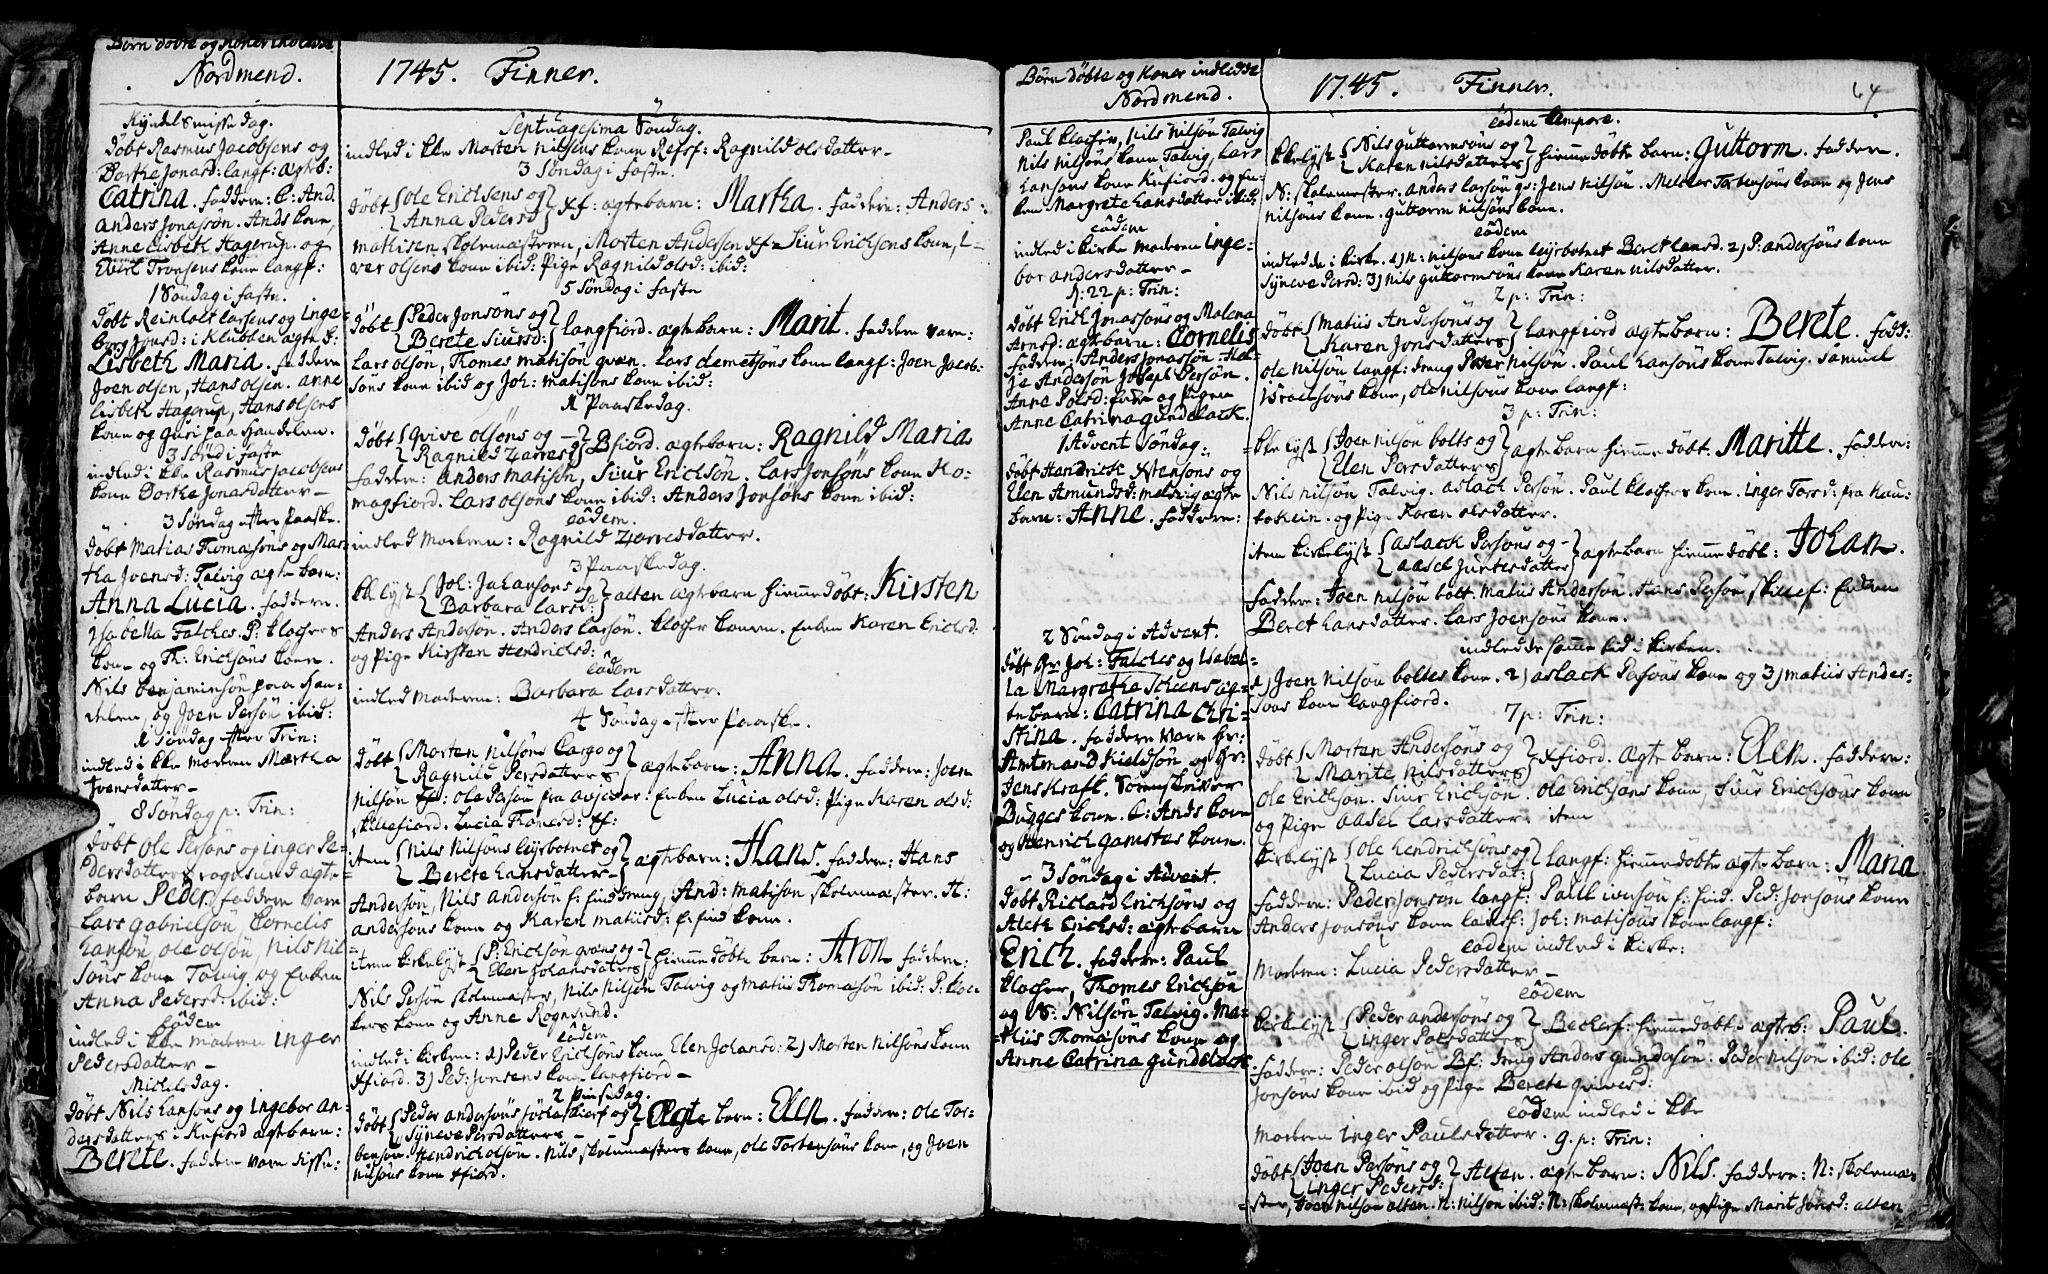 Börn döbte og Koner indledde
Nordmend.
Kyndelsmisse dag.
döbt Rasmus Jacobsens og
Dorthe Jonasd: langf: ægteb:
Catrina. faddern: C: And.
Anders Jonasön. Ands kone,
Anne Lisbeth Hagerup. og
Evert Tronsens kone langf:
1 Söndag i faste.
döbt Reinholt Larsens og Inge-
borg Jonsd: i Klubben ægte b:
Lisbeth Maria. faddern
Joen olsen, Hans olsen. anne
lisbeth Hagerup, Hans olsens
kone og Guri paa Handelen.
3 Sönd i faste
indled i kke Rasmus Jacobsens
kone Dorthe Jonasdatter
3 Söndag efter Paaske.
döbt Matias Thomasöns og Mar-
tha Joensd: Talvig ægte barn:
Anna Lucia. faddern.
Isabella Falches. P: klochers
kone og Th: Ericksöns kone.
Nils benjaminsön paa Han-
delen, og Joen Persön ibid:
1 Söndag efter Trin:
indled i kke moderen Mærtha
Joensdatter
8 Söndag p: Trin:
döbt Ole Persöns og inger Pe-
dersdatters rognsund ægte
barn Peder. faddern vare
Lars Gabrielsön Cornelis
hansön, ole olsön, Nils Nil
söns kone Talvig og Enken
Anna Pedersd: ibid:
eödem
indled i kke moderen inger
Pedersdatter
Michelsdag.
döbt Nils hansöns og Ingebor an-
dersdatters i Kufiord ægtebarn:
Berete. faddern vare disse:
1745. Finner.
Septuagesima Söndag.
indled i kke Morten Nilsens kone Refsf: Ragnild olsdatter
3 Söndag i faste.
döbt Ole Ericksens og Anna Pedersd xf: ægtebarn: Martha. faddern: Anders
mathisen skolemesteren, Morten Andersen xf= Siur Ericksens kone, i-
ver olsens kone ibid: Pige Ragnild olsd: ibid:
5 Söndag i faste
döbt Peder Jonsöns og Berete Siursd: langfiord. ægtebarn: Marit. faddern vare:
Lars olsön, Thomes matisön qvæn. Lars Clemetsöns kone langf: Joen Jacob-
söns kone ibid og Joh: matisöns kone ibid:
1 Paaskedag.
döbt Qvive olsöns og Ragnild Zarresd Bfiord. ægtebarn: Ragnild Maria
faddern: Anders matisen, Siur Ericksön. Lars Jonsöns kone Ko-
magfiord. Lars olsöns kone ibid: Anders Jonsöns kone ibid:
eödem.
indled moderen: Ragnild Zarresdatter.
3 Paaskedag.
kkelyst Joh: Johansöns og Barbara Larsd: alten ægtebarn hiemedöbt: Kirsten
Anders Andersön. Anders Larsön. klocher konen. Enken Karen Ericksd:
og Pige Kirsten Hendricksd:
eödem
indled moderen: Barbara Larsdatter.
4 Söndag efter Paaske.
döbt Morten Nilsöns Cargo og Ragnild Persdatters ægtebarn: Anna. faddern: Joen
Nilsön xf: ole Persön fra avjevar. Enken Lucia olsd: Pige Karen olsd:
skillefiord. Lucia Thomesd: xf:
item Nils Nilsöns leyrbotnet og Berete Hansdatters ægtebarn: Hans. faddern: Hans
Andersön, Nils Andersön f: find dreng, And: matison skolemester. H:
andersöns kone og Karen matiisd: f: find kone.
item kirkelyst P: Ericksön qvæns og Elen Johansdatters hiemedöbte barn: Aron faddern:
Nils Persön skolemester, Nils Nilsön Talvig og matiis Thomasön ibid: P: kloc-
kers kone og Anne Rognsund.
eödem
indled i kirken: 1) Peder Ericksöns kone Elen Johansd: 2) Morten Nilsöns kone
xfiord. 3) Ped: Jonsens kone langfiord
2 Pinsedag.
döbt Peder andersöns og Syneve Persdatters Ægte barn: Elen. faddern: ole Tor-
bensön. Hendrick olsön. Nils skolemesters kone, ole Torstensöns kone, og Joen
nilsöns kone xfiord.
Börn döbte og Koner indledde
Nordmend.
Paul klocher, Nils Nilsön Talvig
Nils Nilsöns kone Talvig, Lars
Hansöns kone Kufiord. og En-
ken Margrete Hansdatter ibid:
eödem
indled i kirke moderen inge-
bor andersdatter
S: 22 p: Trin:
döbt Erich Jonasöns og Malena
Arnsd: ægtebarn: Cornelis
faddern: Anders Jonasön Hel-
je Andersön Joseph Persön.
Anne Polsd: og Pigen
Anne Catrina gundelach.
1 Advent Söndag.
döbt Hendrick Estensöns og
Elen Amundsd: melsvig ægte
barn: Anne. faddern:
2 Söndag i Advent.
döbt Hr Joh: Falches og Isabel-
la Margretha Scheens æg-
tebarn: Catrina Chri-
stina. faddern vare Hr:
Amtmand Kieldsön og Hr:
Jens Kraft. Sorenskriver
Bugges kone. C: Ands kone
og Henrich Gamstes kone.
3 Söndag i Advent.
döbt Richard Ericksöns og
Aleth Ericksd: ægtebarn
Erich. faddern: Paul
klocher, Thomes Ericksön
og N: Nilsön Talvig. Ma-
thiis Thomasöns kone og
Anne Catrina gundelach.
1745. Finner. 64
eödem tempore.
kkelyst Nils Guttormsöns og Karen Nilsdatters hiemedöbte barn: Guttorm. faddern.
N: skolemester. anders larsön gs: Jens Nilsön. Melcher Torbensöns kone og Jens
nilsöns kone. Guttorm Nilsöns kone.
eödem
indledde i kirke. 1) N: nilsöns kone leyrbotnet Beret hansd. 2) P: andersöns kone
Syneve Persd: 3) Nils guttormsöns kone Karen Nilsdatter.
2 p: Trin:
döbt Matiis Andersöns og Karen Jonsdatters langfiord ægte barn: Berete. fadd:
ole Nilsön langf: dreng Peder Nilsön. Paul Hansöns kone Talvig. Samuel
Israelsöns kone, ole Nilsöns kone langf:
3 p: Trin:
kkelyst Joen Nilsön bolts og Elen Persdatters ægtebarn hiemedöbt. Maritte. faddern:
Nils Nilsön Talvig. aslack Persön. Paul klochers kone. inger Torsd: fra Kau-
tokein. og Pige Karen olsdatter.
item kirkelyst aslack Persöns og aasel Juntesdatter ægtebarn hiemedöbt: Johan.
faddern: Joen Nilsön bolt. Matiis Andersön. Hans Persön skillef: Enken
Beret Hansdatter. Lars Joensöns kone.
indledde samme tid i kirken.
1) Joen Nilsön boltes kone. 2) aslack Persöns kone og 3) matiis Anders-
söns kone langfiord.
7 p: Trin:
döbt Morten Andersöns og Marite Nilsdatters xfiord. Ægte barn: Elen. faddern:
Ole Ericksön. Siur Ericksön. Ole Ericksöns kone, Siur Ericksöns kone
og Pige Aasel Larsdatter. item
kirkelyst Ole Hendricksöns og Lucia Pedersdat: langf: hiemedöbte ægte barn: Maria
faddern: Peder Jonsön langf: Paul iversön f: find. Ped: Jonsöns kone
Anders Jonsöns kone langf: Joh: matisöns kone langf:
eödem indled i kirke:
Moderen: Lucia Pedersdatter
eödem
kirkelyst Peder andersöns og Inger Polsdatters Beckerf: hiemedöbt: ægteb: Paul.
faddern: Peder olsön Bf: dreng Anders gundersön: Peder Nilsön ibid: ole
Jonsöns kone ibid og Pige Berete qvivesd:
eödem indled i kke
Moderen Inger Paulsdatter. 9. p: Trin:
döbt Joen Persöns og inger Pedersd: Alten. ægte barn: Nils. faddern: N: skoleme-
ster, Joen Nilsön alten. N: Nilsön ibid: N: skolemest: kone, og Pige Marit Jonsd: alten